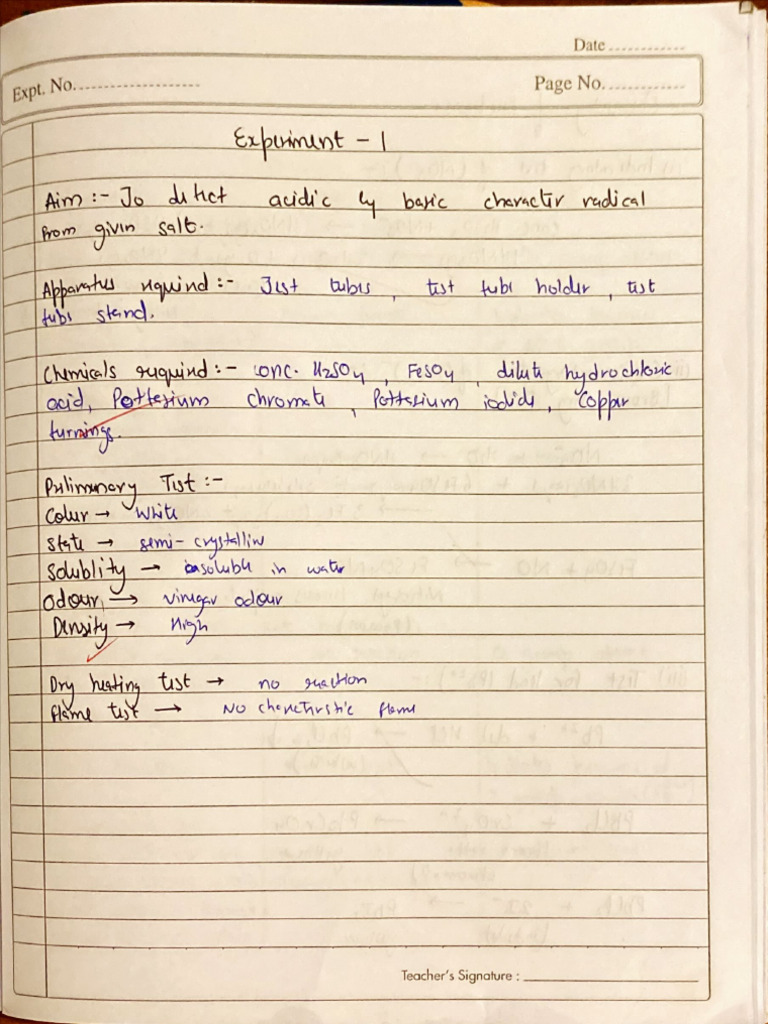 Date ............
Expt. No. ....................
Page No. ............
Experiment - 1
Aim :- To detect acidic by basic character radical
from given salt.
Apparatus required :- Test tubes , test tube holder , test
tube stand.
Chemicals required :- conc. H₂SO₄ , FeSO₄ , dilute hydrochloric
acid, Pottasium chromate , Pottasium iodide, Copper
turnings.
Prelimunary Test :-
Colur → White
State → semi-crystalline
Solublity → insoluble in water
Odour → vinegar odour
Density → High
Dry heating test → no reaction
flame test → No charcteristic flame
Teacher's Signature :